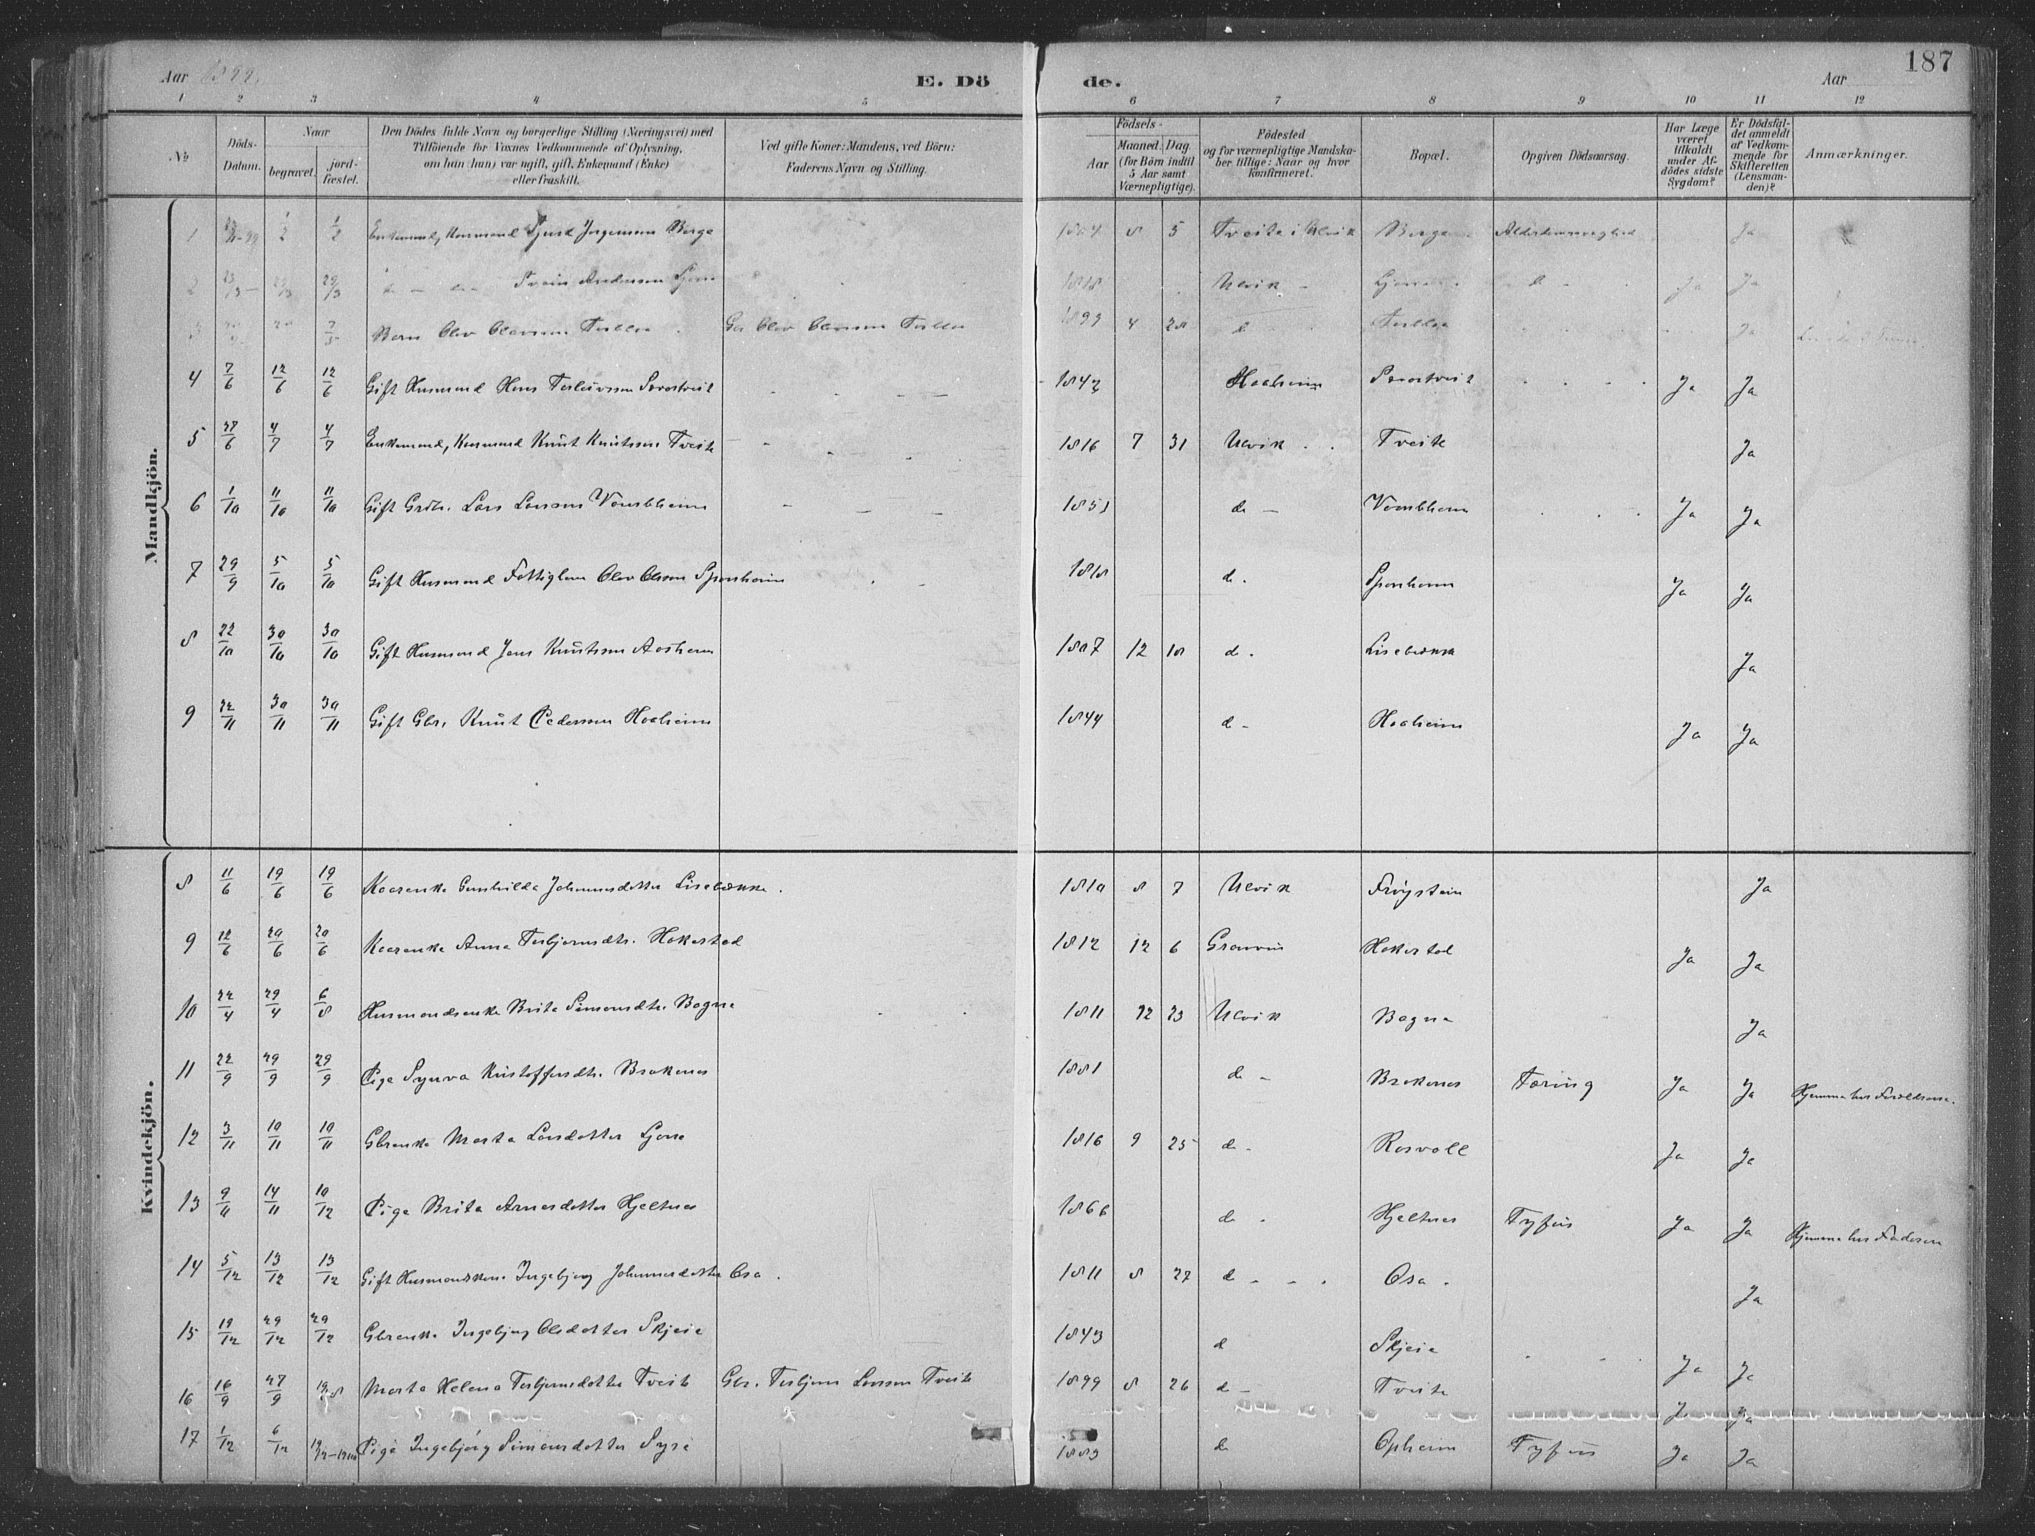 Aar 1899. E. Dö de. Aar 187
1 2 3 4 5 6 7 8 9 10 11 12
№ Döds-Datum. Naar begravet. jord-fæstet. Den Dödes fulde Navn og borgerlige Stilling (Næringsvei) med Tilföiende for Voxnes Vedkommende af Oplysning, om han (hun) var ugift, gift, Enkemand (Enke) eller fraskilt. Ved gifte Koner: Mandens, ved Börn: Faderens Navn og Stilling. Födsels- Aar Maaned Dag (for Börn indtil 5 Aar samt Værnepligtige). Födested og for værnepligtige Mandskaber tillige: Naar og hvor konfirmeret. Bopæl. Opgiven Dödsaarsag. Har Læge været tilkaldt under Afdödes sidste Sygdom? Er Dödsfaldet anmeldt af Vedkommende for Skifteretten (Lensmanden)? Anmærkninger.
Mandkjön.
1 1/2 1/2 Enkemand, Husmand Sjurd Jørgensen Berge 8 5 Tveite i Ulvik Berge Alderdomssvaghed Ja
2 29/3 Svein Andersen 1818 Ulvik Ja Ja
3 Barn Olav Olavsen 1899 4 28 d Ja
4 7/6 12/6 12/6 Gift Husmand Hans Torleivssen 1842 Haaheim Ja Ja
5 27/6 4/7 4/7 Enkemand, Husmand Knut Knutssen Tveite 1816 7 31 Ulvik Tveite Ja
6 1/10 11/10 11/10 Gift Grdbr. Lars Larssen Vambheim 1853 d - Vambheim Ja Ja
7 29/9 5/10 5/10 Gift Husmand Fattiglem Olav Olssen Sponheim 1818 d. Sponheim Ja Ja
8 22/10 30/10 30/10 Gift Husmand Jens Knutssen Aasheim 1807 12 18 d. Lisebrekke Ja
9 22/11 30/11 30/11 Gift Gbr. Knut Pederssen Haaheim 1844 d - Haaheim Ja Ja
Kvindekjön.
8 11/6 19/6 19/6 Kaarenke Gunhilda Johannesdotter Lisebrekke. 1810 8 7 Ulvik Frøystein Ja
9 12/6 20/6 20/6 Kaarenke Anna Torbjørnsdtr. Hakestad 1812 12 6 Graven Hakestad Ja Ja
10 22/4 29/4 6/8 Husmandsenke Brita Simonsdtr. Bagna 1811 12 23 Ulvik Bagna Ja
11 22/9 29/9 29/9 Pige Synva Kristoffersdtr. Brakenes 1881 d - Brakenes Tæring Ja Ja Hjemme hos Forældrene.
12 3/11 10/11 10/11 Gbrenke Marta Larsdotter Ljone 1816 9 25 d - Rosvoll Ja Ja
13 9/11 14/11 10/12 Pige Brita Arnesdotter Hjeltnes 1866 d - Hjeltnes Tyfus Ja Ja Hjemme hos Faderen
14 5/12 13/12 13/12 Gift Husmandskone Ingebjørg Johannesdotter Osa. 1811 8 27 d - - . Osa. Ja
15 19/12 29/12 29/12 Gbrenke Ingebjørg Olsdotter Skjeie 1843 d Skjeie Ja Ja
16 16/9 27/9 Marta Helena Torbjørnsdotter Tveite Gbr. Torbjørn Larssen Tveite 1899 8 26 d - Tveite Ja Ja
17 1/12 6/12 Pige Ingebjørg Simonsdotter Syse 1883 d Opheim Tyfus Ja Ja